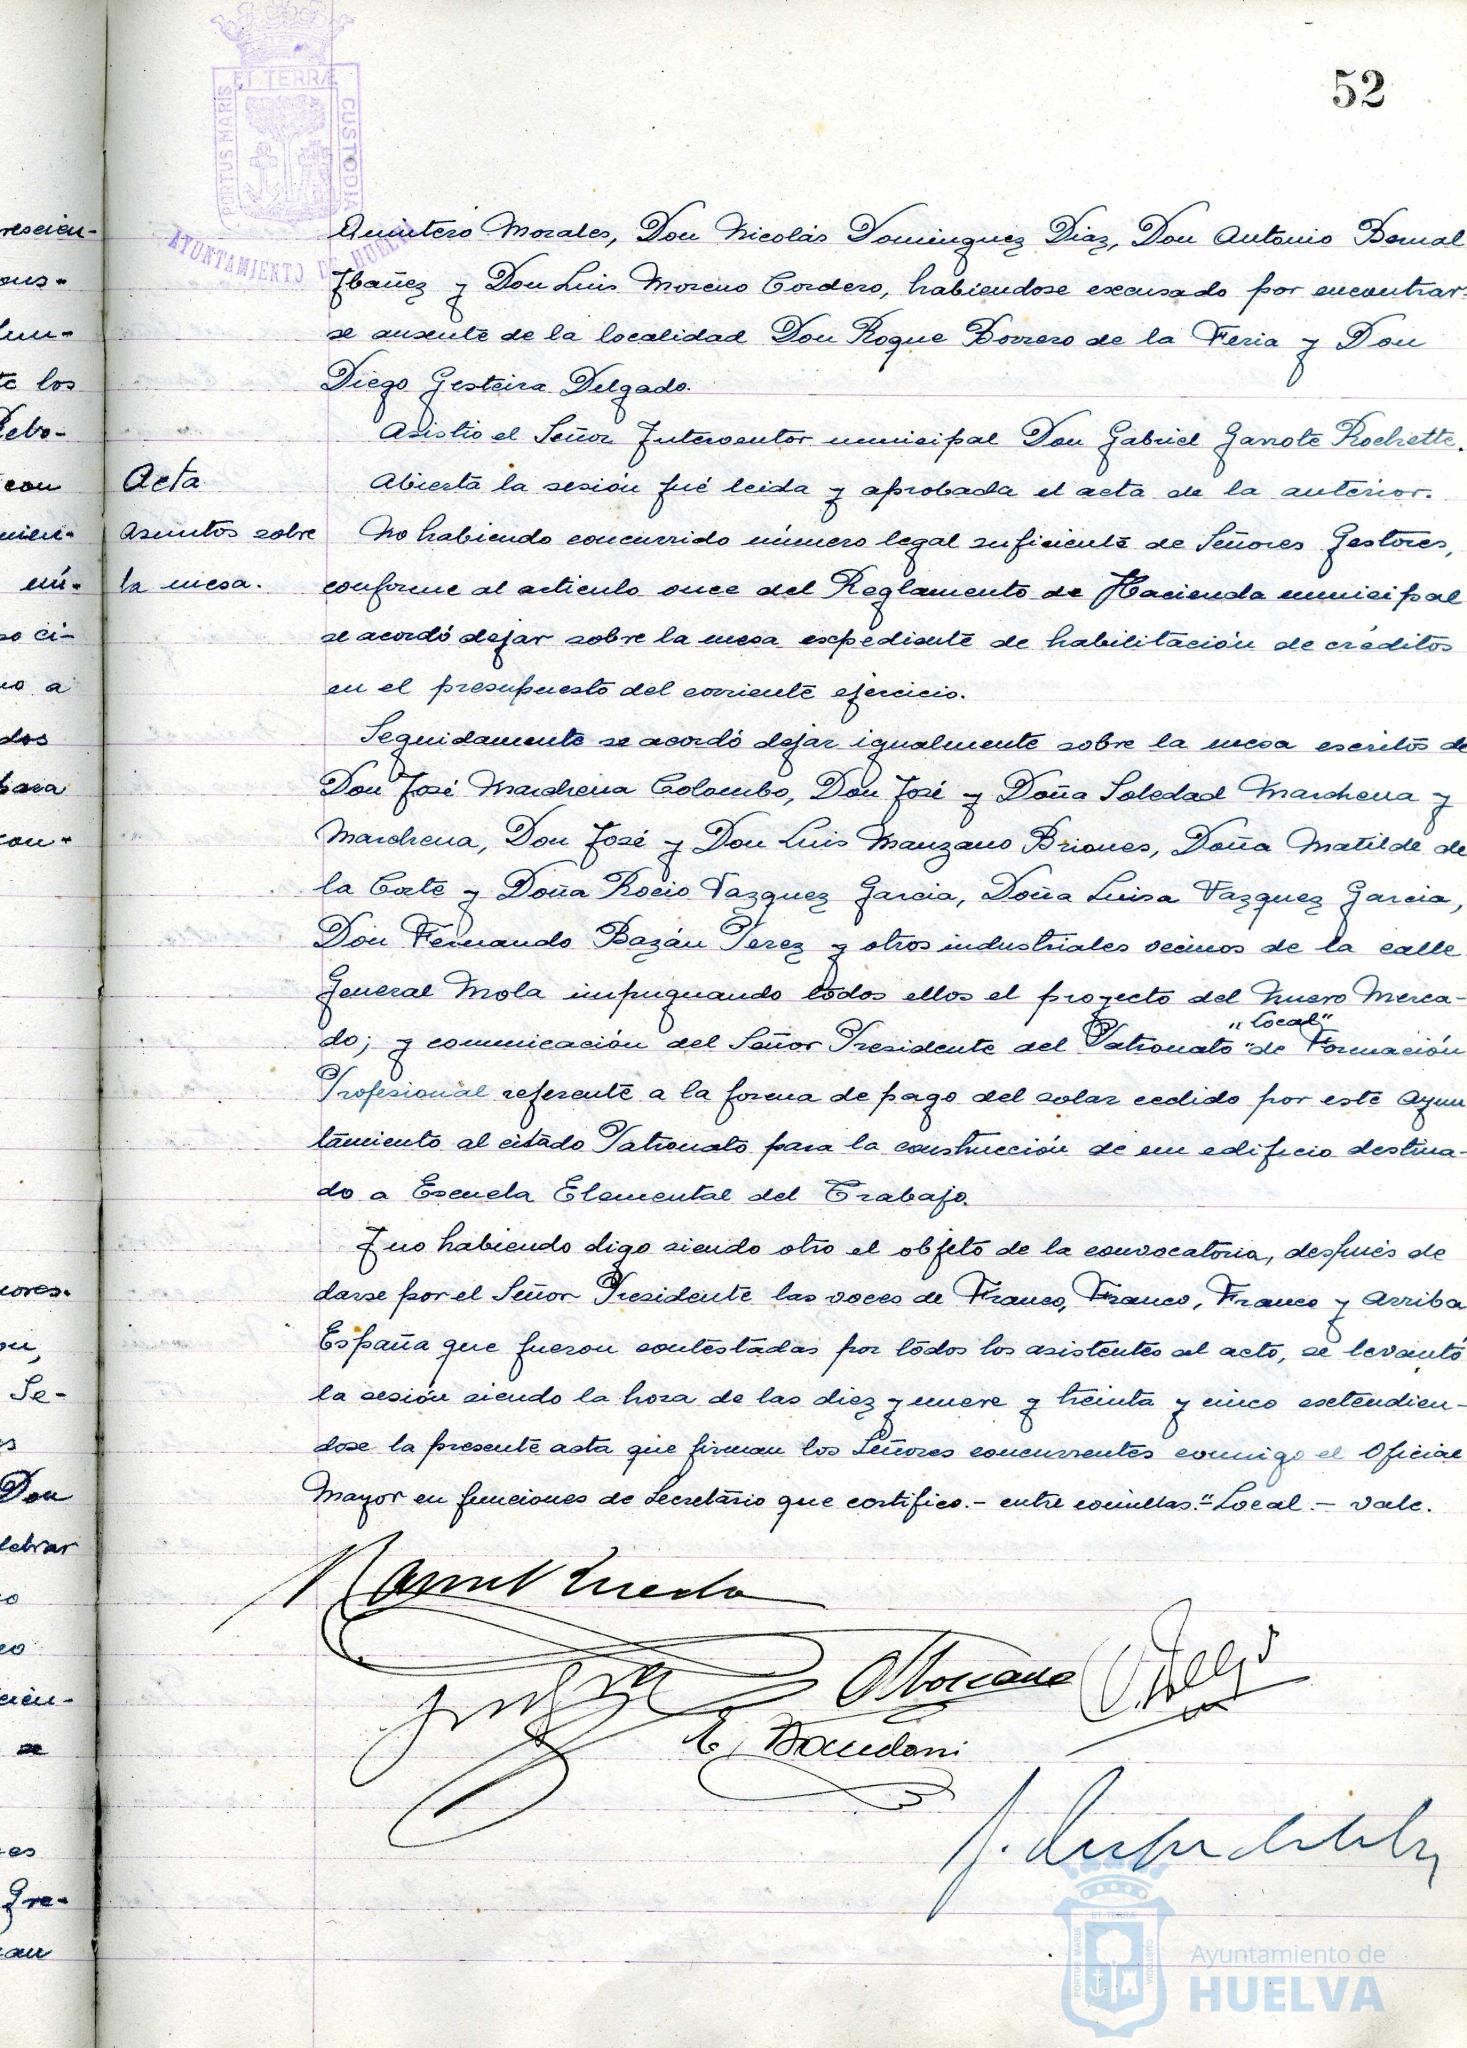 52
ET TERRÆ
PORTUS MARIS
CUSTODIA
AYUNTAMIENTO DE HUELVA
Quintero Morales, Don Nicolás Dominguez Diaz, Don Antonio Bernal
Ibañez y Don Luis Moreno Cordero, habiendose excusado por encontrar-
se ausente de la localidad Don Roque Borrero de la Feria y Don
Diego Gesteira Delgado.
Asistio el Señor Interventor municipal Don Gabriel Garrote Rochette.
Acta
Abierta la sesión fué leida y aprobada el acta de la anterior.
Asuntos sobre
la mesa.
No habiendo concurrido número legal suficiente de Señores Gestores,
conforme al articulo once del Reglamento de Hacienda municipal
se acordó dejar sobre la mesa expediente de habilitación de créditos
en el presupuesto del corriente ejercicio.
Seguidamente se acordó dejar igualmente sobre la mesa escritos de
Don José Marchena Colombo, Don José y Doña Soledad Marchena y
Marchena, Don José y Don Luis Manzano Briones, Doña Matilde de
la Corte y Doña Rocio Vazquez Garcia, Doña Luisa Vazquez Garcia,
Don Fernando Bazán Perez y otros industriales vecinos de la calle
General Mola impugnando todos ellos el proyecto del Nuevo Merca-
"Local"
do; y comunicación del Señor Presidente del Patronato " de Formación
Profesional referente a la forma de pago del solar cedido por este Ayun
tamiento al citado Patronato para la construcción de un edificio destina-
do a Escuela Elemental del Trabajo.
Y no habiendo digo siendo otro el objeto de la convocatoria, después de
darse por el Señor Presidente las voces de Franco, Franco, Franco y Arriba
España que fueron contestadas por todos los asistentes al acto, se levantó
la sesión siendo la hora de las diez y nueve y treinta y cinco extendien-
dose la presente acta que firman los Señores concurrentes conmigo el Oficial
Mayor en funciones de Secretario que certifico.- entre comillas."Local.- vale.
Ayuntamiento de
HUELVA